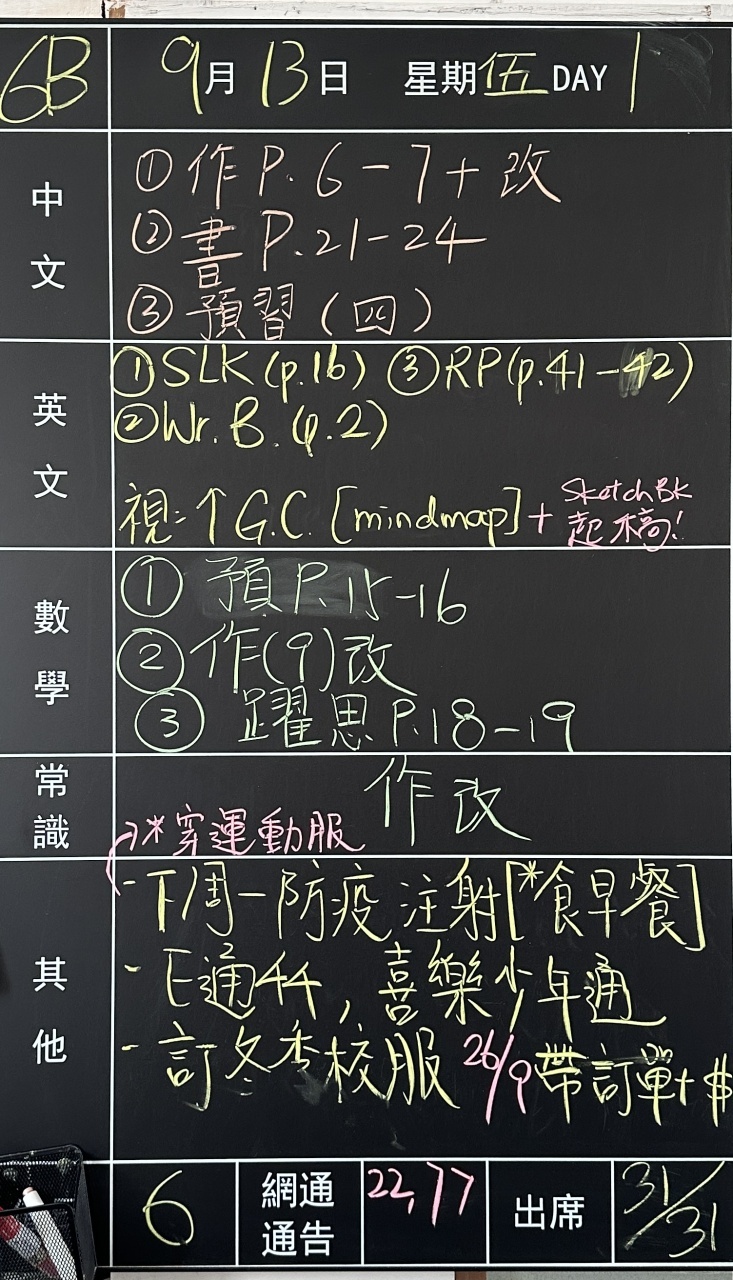 6B 9月13日 星期伍 DAY 1
中文
①作P.6-7+改
②書P.21-24
③預習(四)
英文
①SLK(p.16) ③RP(p.41-42)
②Wr.B.(p.2)
視:↑G.C.[mindmap]+SketchBk起稿!
數學
① 預P.15-16
②作(9)改
③ 躍思P.18-19
常識
作改
*穿運動服
其他
-下周一防疫注射[*食早餐]
-E通44,喜樂少年通
-訂冬季校服 26/9帶訂單+$
6 網通通告 22,77 出席 31/31